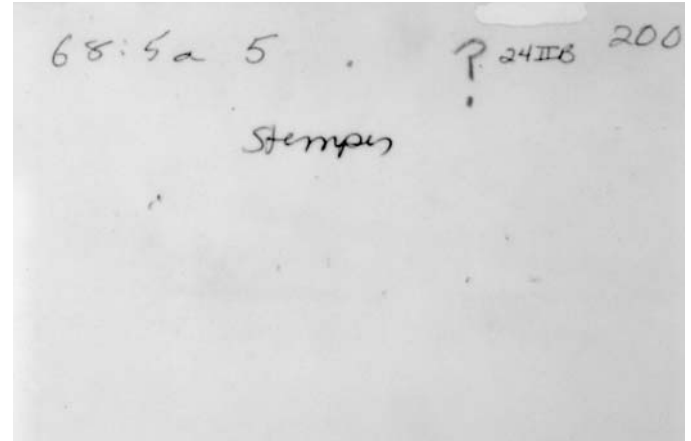 68:5a 5 . ? 24IIB 200
Stemper